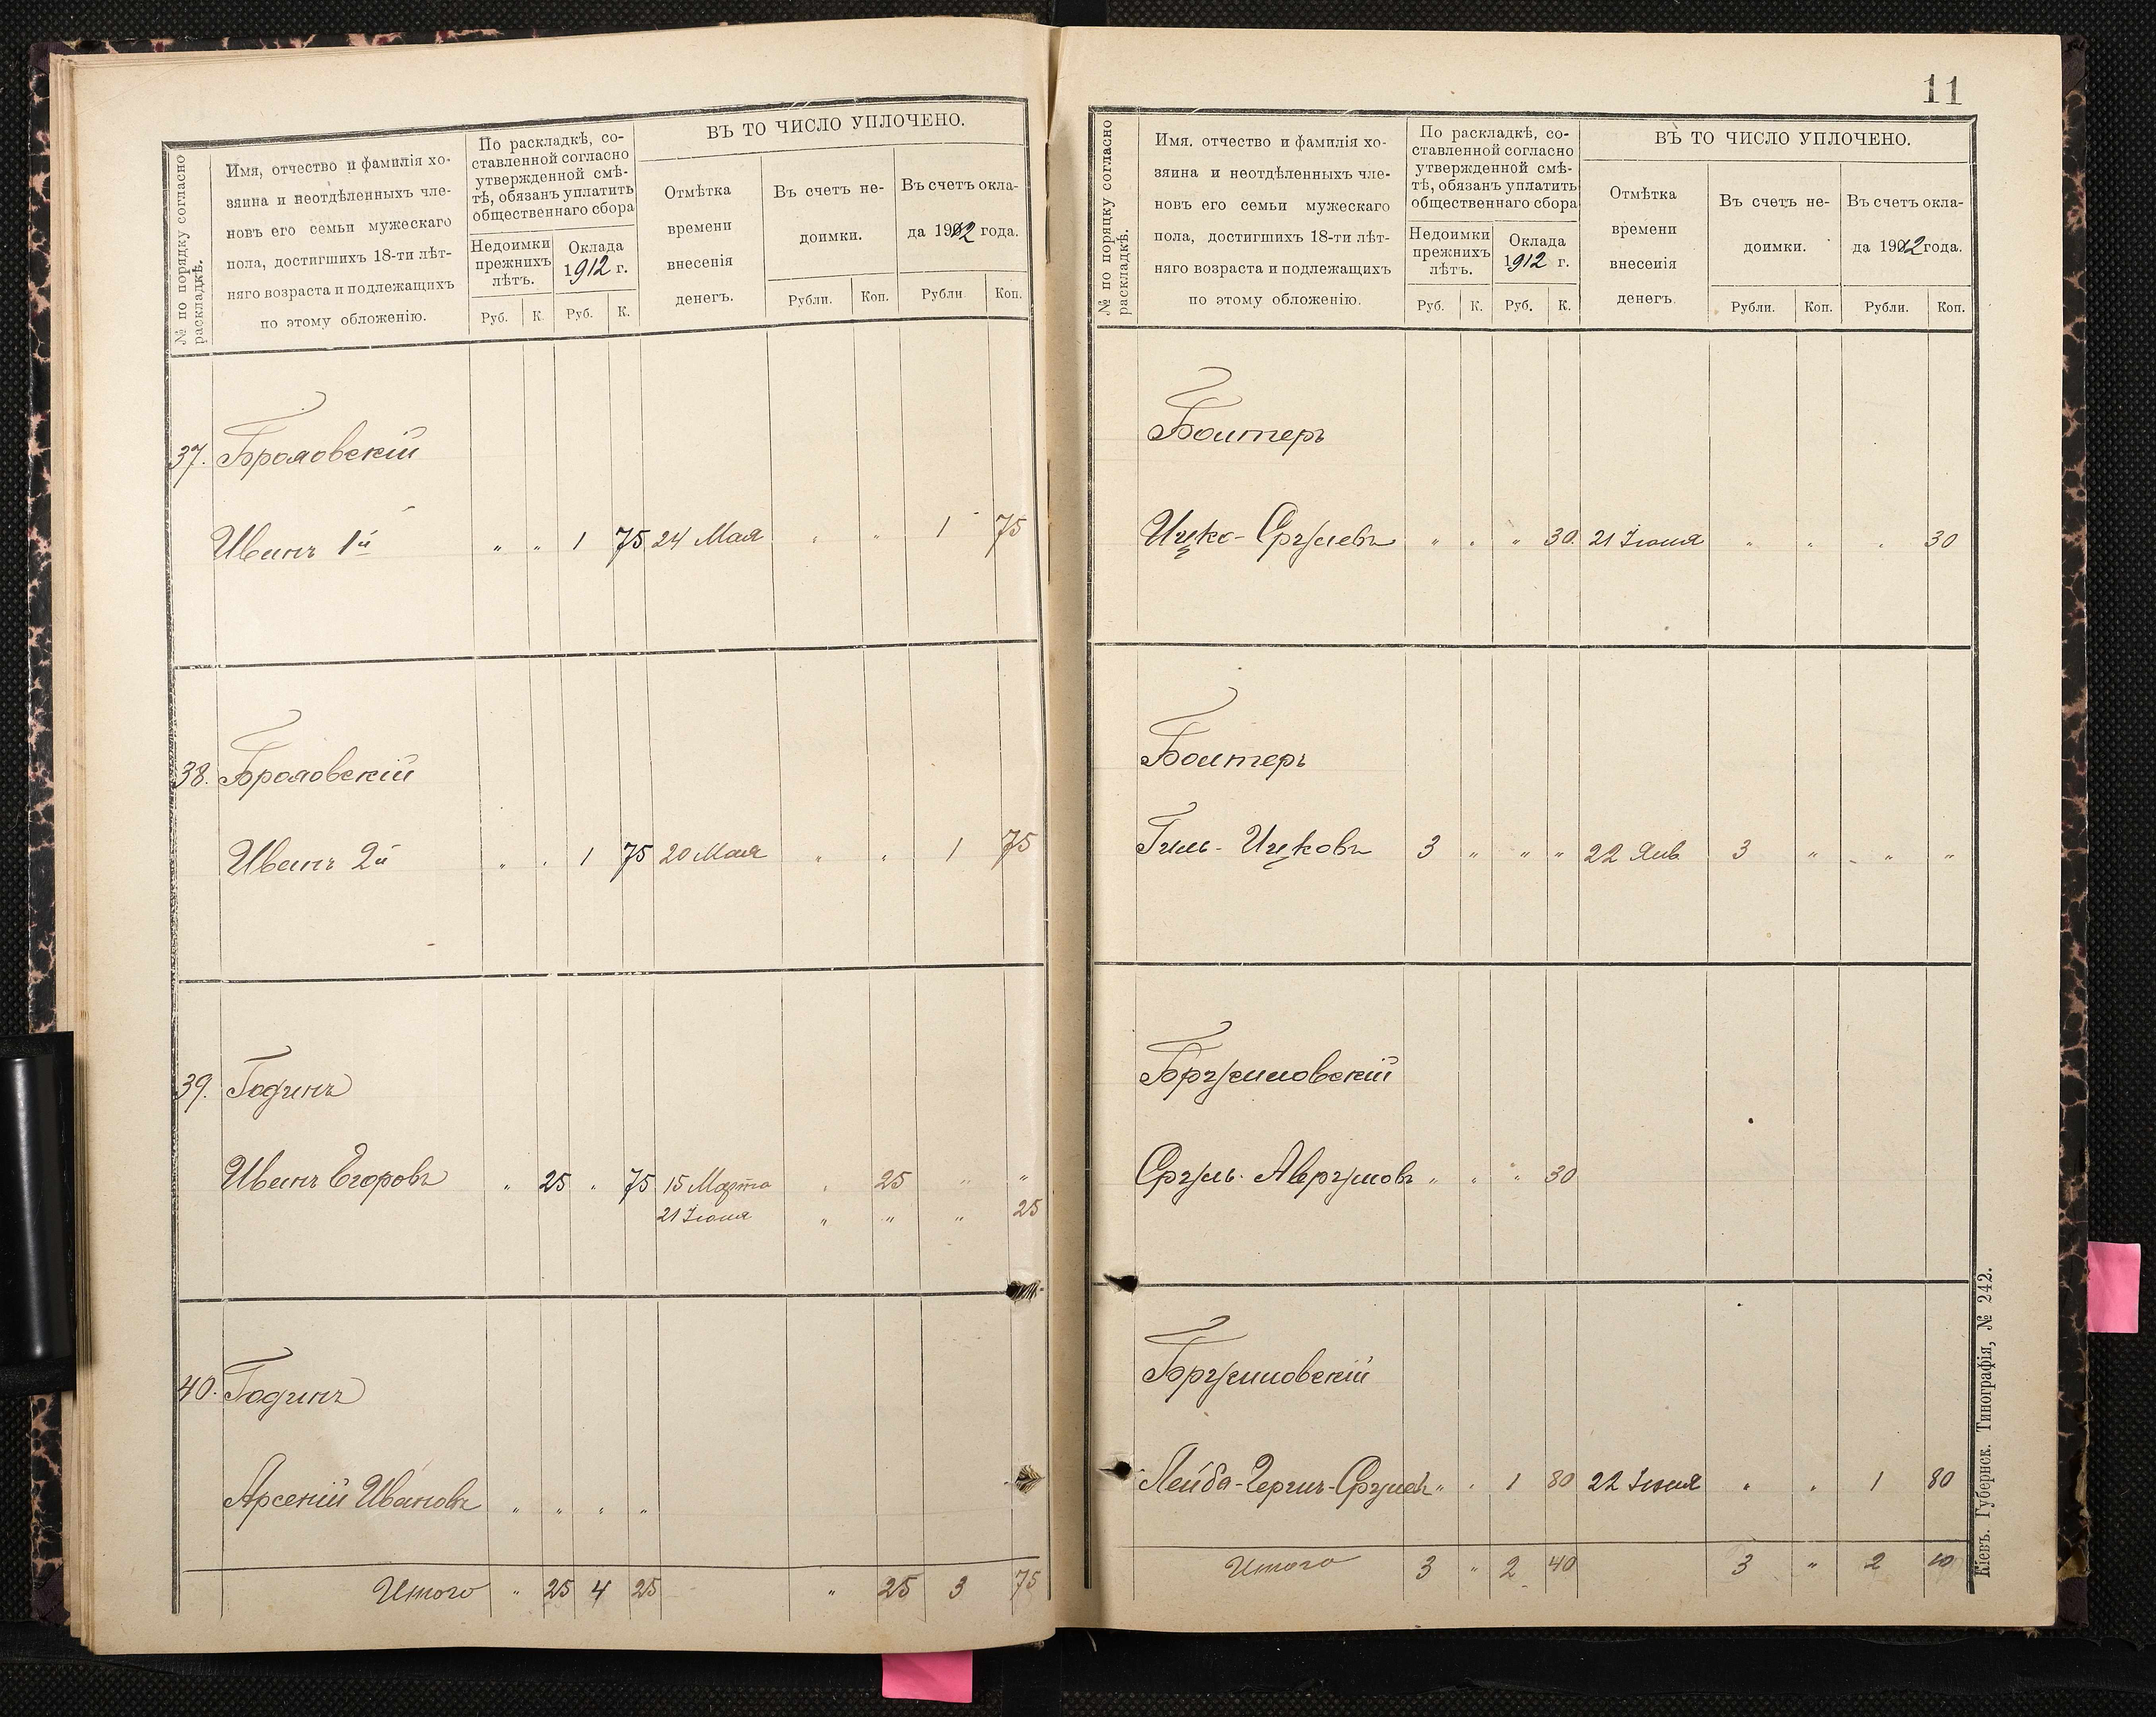 № по порядку согласно раскладкѣ.
Имя, отчество и фамилія хо-
зяина и неотдѣленныхъ чле-
новъ его семьи мужескаго
пола, достигшихъ 18-ти лѣт-
няго возраста и подлежащихъ
по этому обложенію.
По раскладкѣ, со-
ставленной согласно
утвержденной смѣ-
тѣ, обязанъ уплатить
общественнаго сбора
Недоимки
прежнихъ
лѣтъ.
Оклада
1912 г.
Руб. К. Руб. К.
ВЪ ТО ЧИСЛО УПЛОЧЕНО.
Отмѣтка
времени
внесенія
денегъ.
Въ счетъ не-
доимки.
Въ счетъ окла-
да 1912 года.
Рубли. Коп. Рубли Коп.
37.
Иванъ 1й " " 1 75 24 Мая " " 1 75
38.
Иванъ 2й " " 1 75 20 Мая " " 1 75
39. Годинъ
Иванъ Егоровъ " 25 " 75 15 Марта " 25 " "
21 Іюня " " " 25
40. Годинъ
Арсеній Ивановъ " " " "
Итого " 25 4 25 " 25 3 75
11
№ по порядку согласно раскладкѣ.
Имя, отчество и фамилія хо-
зяина и неотдѣленныхъ чле-
новъ его семьи мужескаго
пола, достигшихъ 18-ти лѣт-
няго возраста и подлежащихъ
по этому обложенію.
По раскладкѣ, со-
ставленной согласно
утвержденной смѣ-
тѣ, обязанъ уплатить
общественнаго сбора
Недоимки
прежнихъ
лѣтъ.
Оклада
1912 г.
Руб. К. Руб. К.
ВЪ ТО ЧИСЛО УПЛОЧЕНО.
Отмѣтка
времени
внесенія
денегъ.
Въ счетъ не-
доимки.
Въ счетъ окла-
да 1912 года.
Рубли. Коп. Рубли. Коп.
Ицко-Срулевъ " " " 30 21 Іюня " " " 30
Гиль-Ицковъ 3 " " " 22 Янв 3 " " "
Сруль-Аврумовъ " " " 30
Лейба-Герш-Срулев " " 1 80 22 Іюня " " 1 80
Итого 3 " 2 40 3 " 2 10
Кіевъ. Губернск. Типографія, № 242.